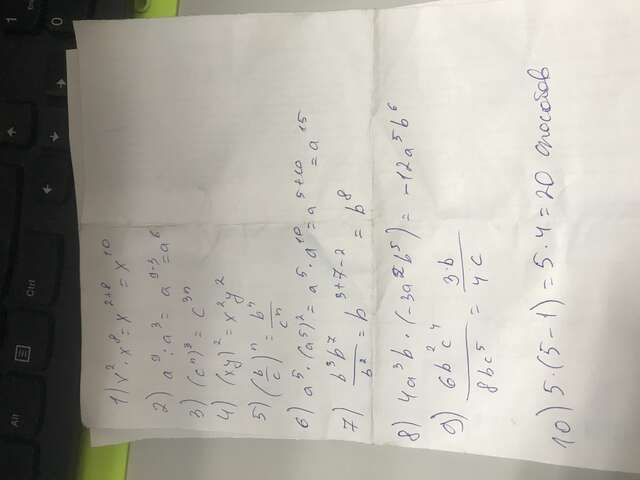 Alt
Ctrl
1
0
1) x² · x⁸ = x²⁺⁸ = x¹⁰
2) a⁹ : a³ = a⁹⁻³ = a⁶
3) (cⁿ)³ = c³ⁿ
4) (xy)² = x²y²
5) (b/c)ⁿ = bⁿ/cⁿ
6) a⁵ · (a⁵)² = a⁵ · a¹⁰ = a⁵⁺¹⁰ = a¹⁵
7) b³b⁷/b² = b³⁺⁷⁻² = b⁸
8) 4a³b · (-3a²b⁵) = -12a⁵b⁶
9) 6b²c⁴/8bc⁵ = 3·b/4c
10) 5·(5-1) = 5·4 = 20 способов